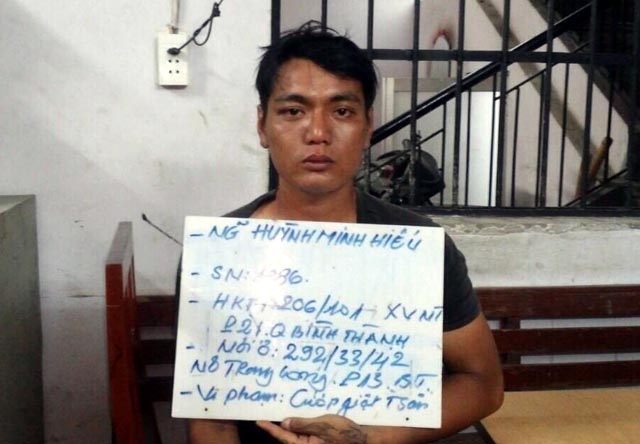 - NG̃ HUỲNH MINH HIẾU
- SN: 1996.
- HKTT 206/101 XVNT
P21. Q BÌNH THẠNH
- NƠI Ở: 292/33/42
Nơ Trang Long. P13. BT.
- Vi phạm: Cướp giật Tsản